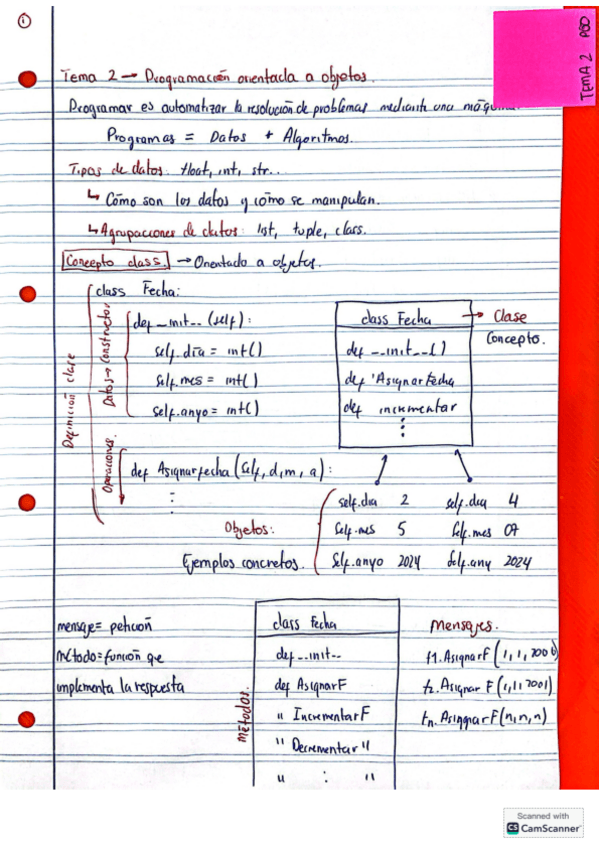 1
TEMA 2 POO
Tema 2 → Programación orientada a objetos.
Programar es automatizar la resolución de problemas mediante una máquina
Programas = Datos + Algoritmos.
Tipos de datos: float, int, str..
↳ Cómo son los datos y cómo se manipulan.
↳ Agrupaciones de datos: list, tuple, class.
Concepto class. → Orientado a objetos.
Definición clase
class Fecha:
Datos → Constructor
def __init__(self):
self.día = int()
self.mes = int()
self.anyo = int()
Operaciones.
def Asignarfecha (self, d, m, a):
⋮
class Fecha → Clase
Concepto.
def __init__()
def AsignarFecha
def incrementar
⋮
Objetos:
Ejemplos concretos.
self.dia 2 self.dia 4
self.mes 5 self.mes 07
self.anyo 2024 self.any 2024
mensaje = petición
método = función que
implementa la respuesta
métodos.
class Fecha
def __init__
def AsignarF
" IncrementarF
" Decrementar "
" ⋮ "
Mensajes.
f1.AsignarF (1, 1, 2006)
f2.Asignar F (1, 11 2001)
fn.AsignarF (n, n, n)
Scanned with
CS CamScanner